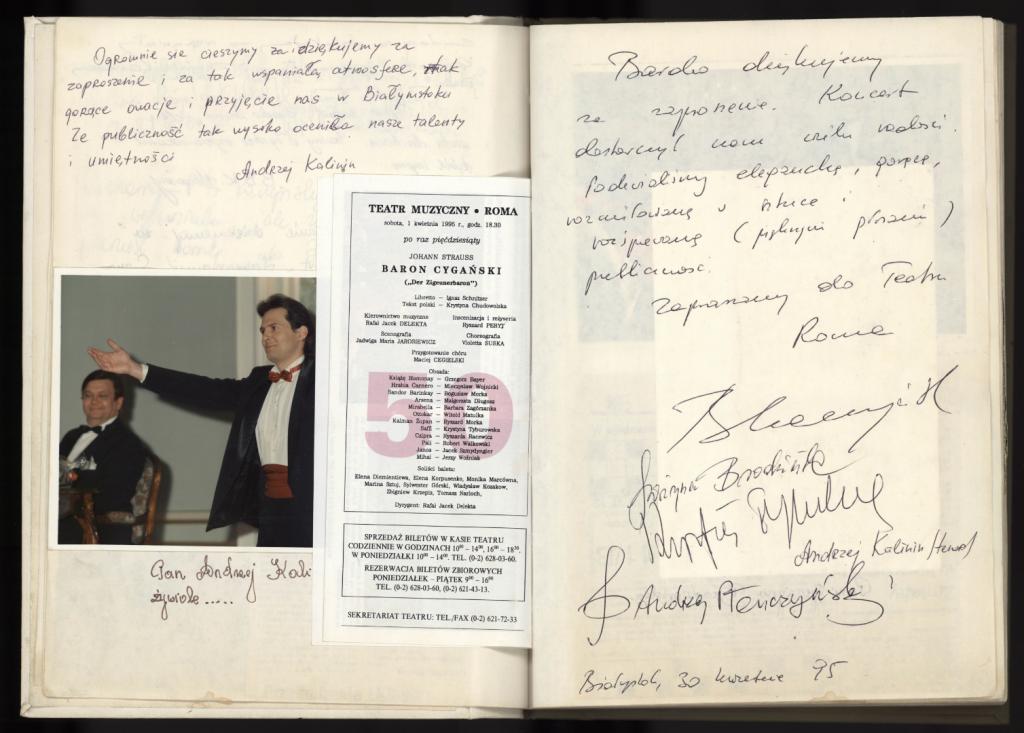 Ogromnie się cieszymy za i dziękujemy za
zaproszenie i za tak wspaniałą atmosferę, tak
gorące owacje i przyjęcie nas w Białymstoku
Ze publiczność tak wysoko oceniła nasze talenty
i umiejętności
Andrzej Kalinin
TEATR MUZYCZNY • ROMA
sobota, 1 kwietnia 1995 r., godz. 18.30
po raz pięćdziesiąty
JOHANN STRAUSS
BARON CYGAŃSKI
(„Der Zigeunerbaron")
Libretto — Ignaz Schnitzer
Tekst polski — Krystyna Chudowolska
Kierownictwo muzyczne
Rafał Jacek DELEKTA
Inscenizacja i reżyseria
Ryszard PERYT
Scenografia
Jadwiga Maria JAROSIEWICZ
Choreografia
Violetta SUSKA
Przygotowanie chóru
Maciej CEGIELSKI
50
Obsada:
Książę Homonay — Grzegorz Bayer
Hrabia Carnero — Mieczysław Wojnicki
Sandor Barinkay — Bogusław Morka
Arsena — Małgorzata Długosz
Mirabella — Barbara Zagórzanka
Ottokar — Witold Matulka
Kalman Zupan — Ryszard Morka
Saffi — Krystyna Tyburowska
Czipra — Ryszarda Racewicz
Pali — Robert Walkowski
Janos — Jacek Szmydyngier
Mihai — Jerzy Woźniak
Soliści baletu:
Elena Diemientiewa, Elena Korpusenko, Monika Marcówna,
Marina Sztuj, Sylwester Górski, Władysław Kozakow,
Zbigniew Krzepis, Tomasz Narloch,
Dyrygent: Rafał Jacek Delekta
SPRZEDAŻ BILETÓW W KASIE TEATRU
CODZIENNIE W GODZINACH 10⁰⁰ – 14⁰⁰, 16⁰⁰ – 18³⁰,
W PONIEDZIAŁKI 10⁰⁰ – 14⁰⁰. TEL. (0-2) 628-03-60.
REZERWACJA BILETÓW ZBIOROWYCH
PONIEDZIAŁEK – PIĄTEK 9⁰⁰ – 16⁰⁰
TEL. (0-2) 628-03-60, (0-2) 621-43-13.
SEKRETARIAT TEATRU: TEL./FAX (0-2) 621-72-33
Pan Andrzej Kali
żywiole .....
Bardzo dziękujemy
za zaproszenie. Koncert
dostarczył nam wiele radości.
Podziwialiśmy elegancką, gorącą,
rozmiłowaną w sztuce i
rozśpiewaną (pięknymi głosami)
publiczność.
Zapraszamy do Teatru
Roma
Grażyna Brodzińska
Andrzej Kalinin
Andrzej Płończyński
Białystok, 30 kwietnia 95